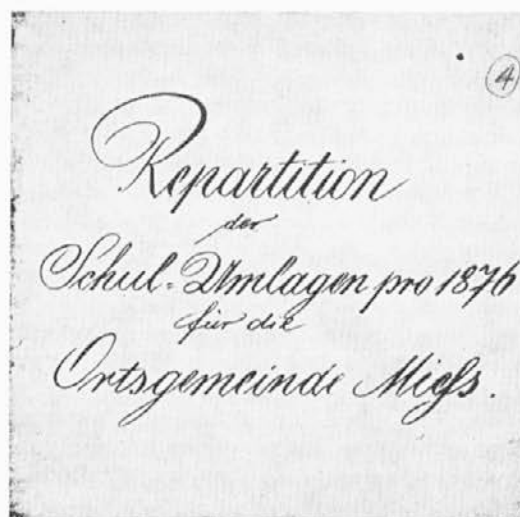 4
Repartition
der
Schul-Umlagen pro 1876
für die
Ortsgemeinde Miess.